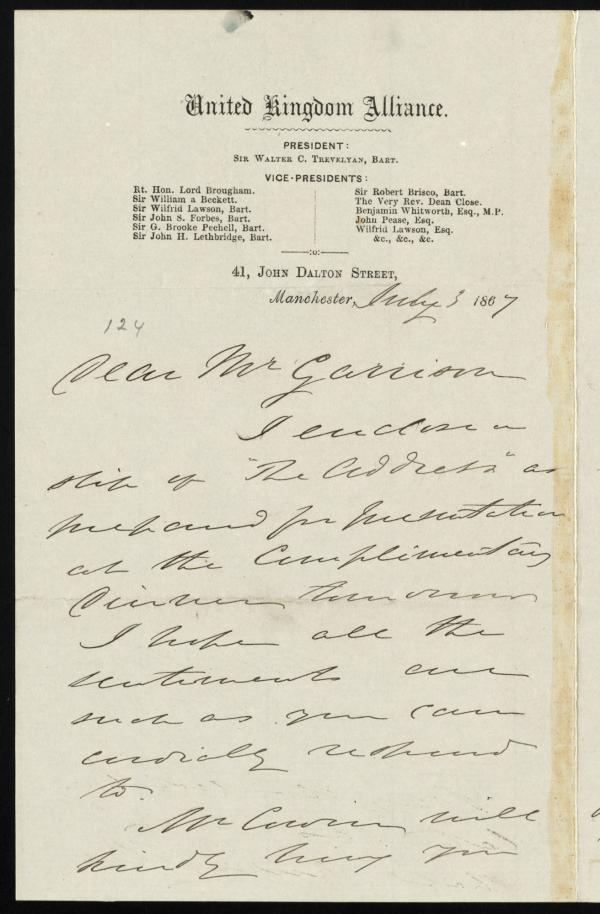 United Kingdom Alliance.
PRESIDENT:
SIR WALTER C. TREVELYAN, BART.
VICE-PRESIDENTS:
Rt. Hon. Lord Brougham.
Sir William a Beckett.
Sir Wilfrid Lawson, Bart.
Sir John S. Forbes, Bart.
Sir G. Brooke Pechell, Bart.
Sir John H. Lethbridge, Bart.
Sir Robert Brisco, Bart.
The Very Rev. Dean Close.
Benjamin Whitworth, Esq., M.P.
John Pease, Esq.
Wilfrid Lawson, Esq.
&c., &c., &c.
:o:
41, JOHN DALTON STREET,
Manchester, July 3 1867
124
Dear Mr Garrison
I enclose a
slip of "The Address" as
prepared for presentation
at the Complimentary
Dinner tomorrow
I hope all the
sentiments are
such as you can
cordially respond
to.
Mr will
kindly bring you